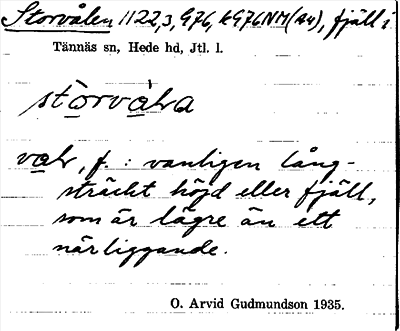 Storvålen 1122,3, G76, kG76NM(Au), fjäll i
Tännäs sn, Hede hd, Jtl. l.
stòrvàḷa
vaḷ, f. : vanligen lång-
sträckt höjd eller fjäll,
som är lägre än ett
närliggande.
O. Arvid Gudmundson 1935.